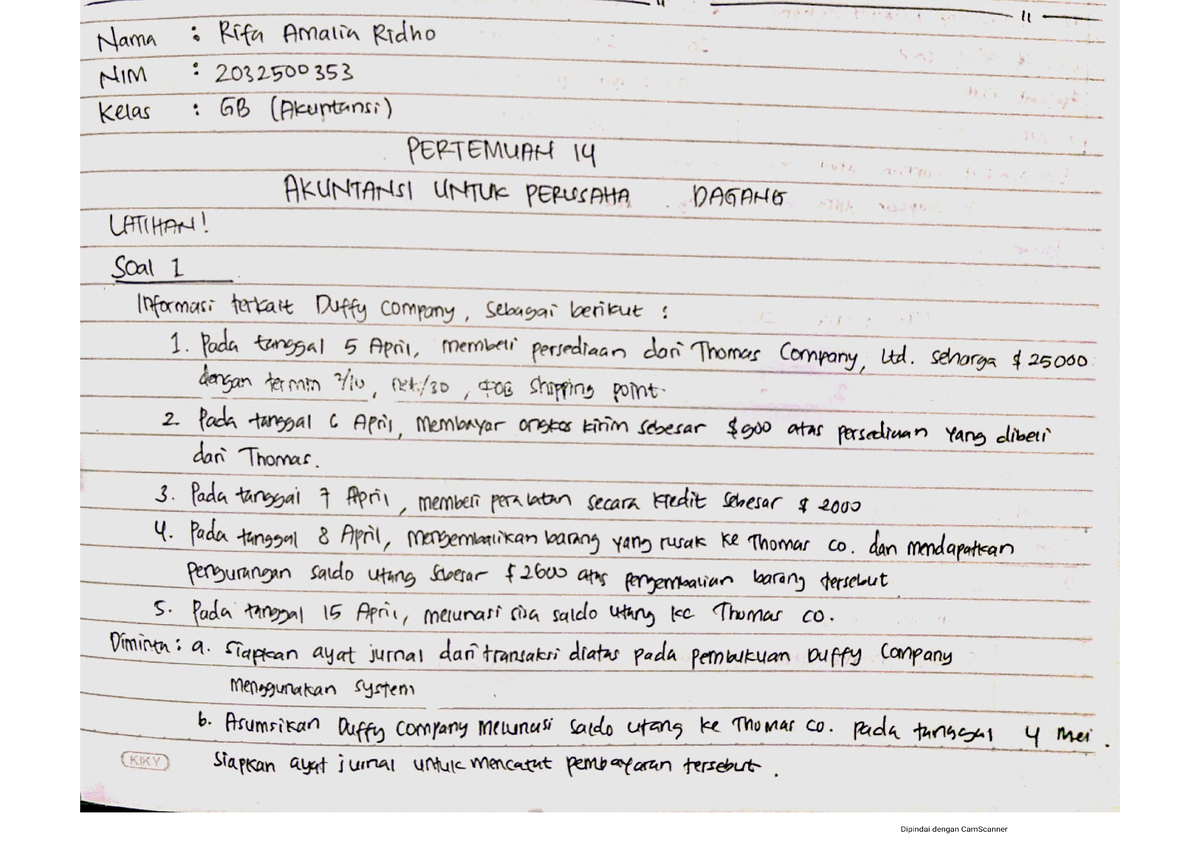 Nama : Rifa Amalia Ridho
NIM : 2032500353
Kelas : GB (Akuntansi)
PERTEMUAN 14
AKUNTANSI UNTUK PERUSAHA DAGANG
LATIHAN!
Soal 1
Informasi terkait Duffy Company, sebagai berikut :
1. Pada tanggal 5 April, membeli persediaan dari Thomas Company, Ltd. seharga $ 25000
dengan termin 2/10, net/30, FOB shipping point.
2. Pada tanggal 6 April, Membayar ongkos kirim sebesar $900 atas persediaan yang dibeli
dari Thomas.
3. Pada tanggal 7 April, membeli peralatan secara kredit sebesar $ 2000
4. Pada tanggal 8 April, mengembalikan barang yang rusak ke Thomas co. dan mendapatkan
pengurangan saldo utang sebesar $2600 atas pengembalian barang tersebut
5. Pada tanggal 15 April, melunasi sisa saldo utang ke Thomas co.
Diminta : a. Siapkan ayat jurnal dari transaksi diatas pada pembukuan Duffy Company
menggunakan system
b. Asumsikan Duffy Company melunasi saldo utang ke Thomas co. pada tanggal 4 Mei.
Siapkan ayat jurnal untuk mencatat pembayaran tersebut.
KIKY
Dipindai dengan CamScanner